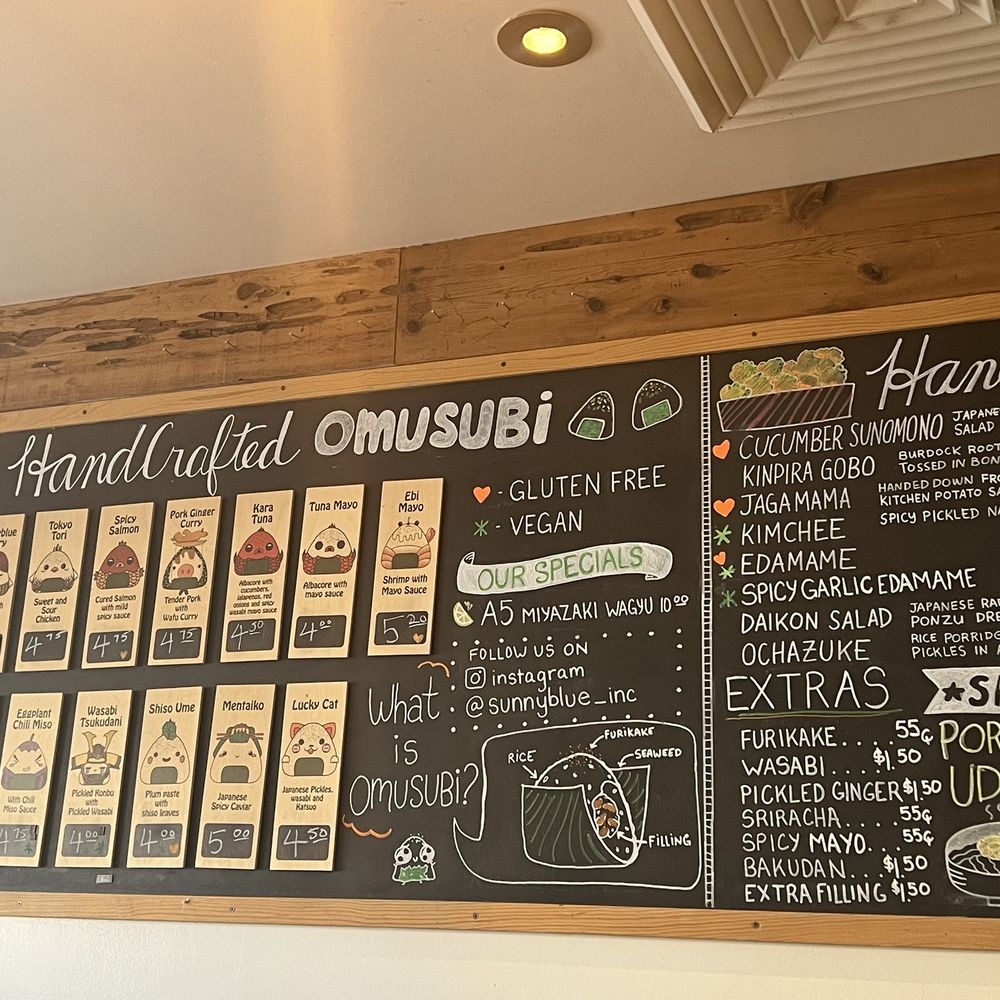 HandCrafted OMUSUBi
Tokyo
Tori
Sweet and
Sour
Chicken
4 75
Spicy
Salmon
Cured Salmon
with mild
spicy sauce
4 75
Pork Ginger
Curry
Tender Pork
with
Wafu Curry
4 75
Kara
Tuna
Albacore with
cucumbers,
jalapenos, red
onions and spicy
wasabi mayo sauce
4 50
Tuna Mayo
Albacore with
mayo sauce
4 00
Ebi
Mayo
Shrimp with
Mayo Sauce
5 20
Eggplant
Chili Miso
With Chili
Miso Sauce
4 75
Wasabi
Tsukudani
Pickled Konbu
with
Pickled Wasabi
4 00
Shiso Ume
Plum paste
with
shiso leaves
4 00
Mentaiko
Japanese
Spicy Caviar
5 00
Lucky Cat
Japanese Pickles,
wasabi and
Katsuo
4 50
- GLUTEN FREE
- VEGAN
OUR SPECIALS
A5 MIYAZAKI WAGYU 10 00
FOLLOW US ON
instagram
@sunnyblue_inc
What
is
OMUSUBi?
RICE
FURIKAKE
SEAWEED
FILLING
Han
CUCUMBER SUNOMONO
JAPANE
SALAD
KINPIRA GOBO
BURDOCK ROOT
TOSSED IN BON
JAGAMAMA
HANDED DOWN FRO
KITCHEN POTATO SA
KIMCHEE
SPICY PICKLED NA
EDAMAME
SPICY GARLIC EDAMAME
DAIKON SALAD
JAPANESE RA
PONZU DRE
OCHAZUKE
RICE PORRIDG
PICKLES IN A
EXTRAS
FURIKAKE....55¢
WASABI....$1.50
PICKLED GINGER $1.50
SRIRACHA....55¢
SPICY MAYO...55¢
BAKUDAN...$1.50
EXTRA FILLING $1.50
POR
UD